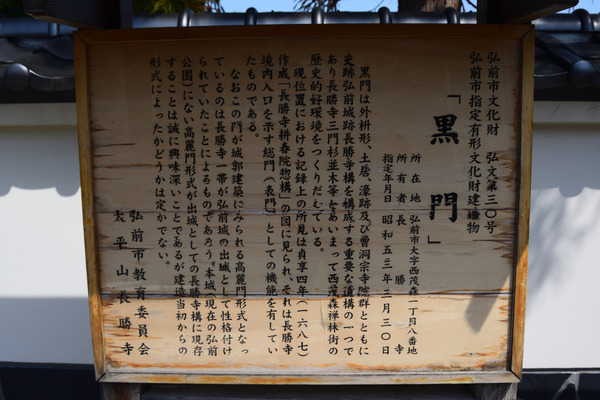 弘前市文化財　弘文第三〇号
弘前市指定有形文化財建造物
「黒門」
所在地　弘前市大字西茂森一丁目八番地
所有者　長勝寺
指定年月日　昭和五三年二月三〇日
黒門は外枡形、土居、濠跡及び曹洞宗寺院群とともに
史跡弘前城跡長勝寺構を構成する重要な遺構の一つで
あり長勝寺三門杉並木等とあいまって西茂森禅林街の
歴史的好環境をつくりだしている。
現位置における記録上の所見は貞享四年（一六八七）
作成「長勝寺耕春院惣構」の図に見られ、それは長勝寺
境内入口を示す総門（表門）としての機能を有してい
たものである。
なおこの門が城郭建築にみられる高麗門形式となっ
ているのは長勝寺一帯が弘前城の出城として性格付け
られていたことによるものであろう。本城（現在の弘前
公園）にない高麗門形式が出城としての長勝寺構に現存
することは誠に興味深いことであるが建造当初からの
形式によったかどうかは定かでない。
弘前市教育委員会
太平山長勝寺